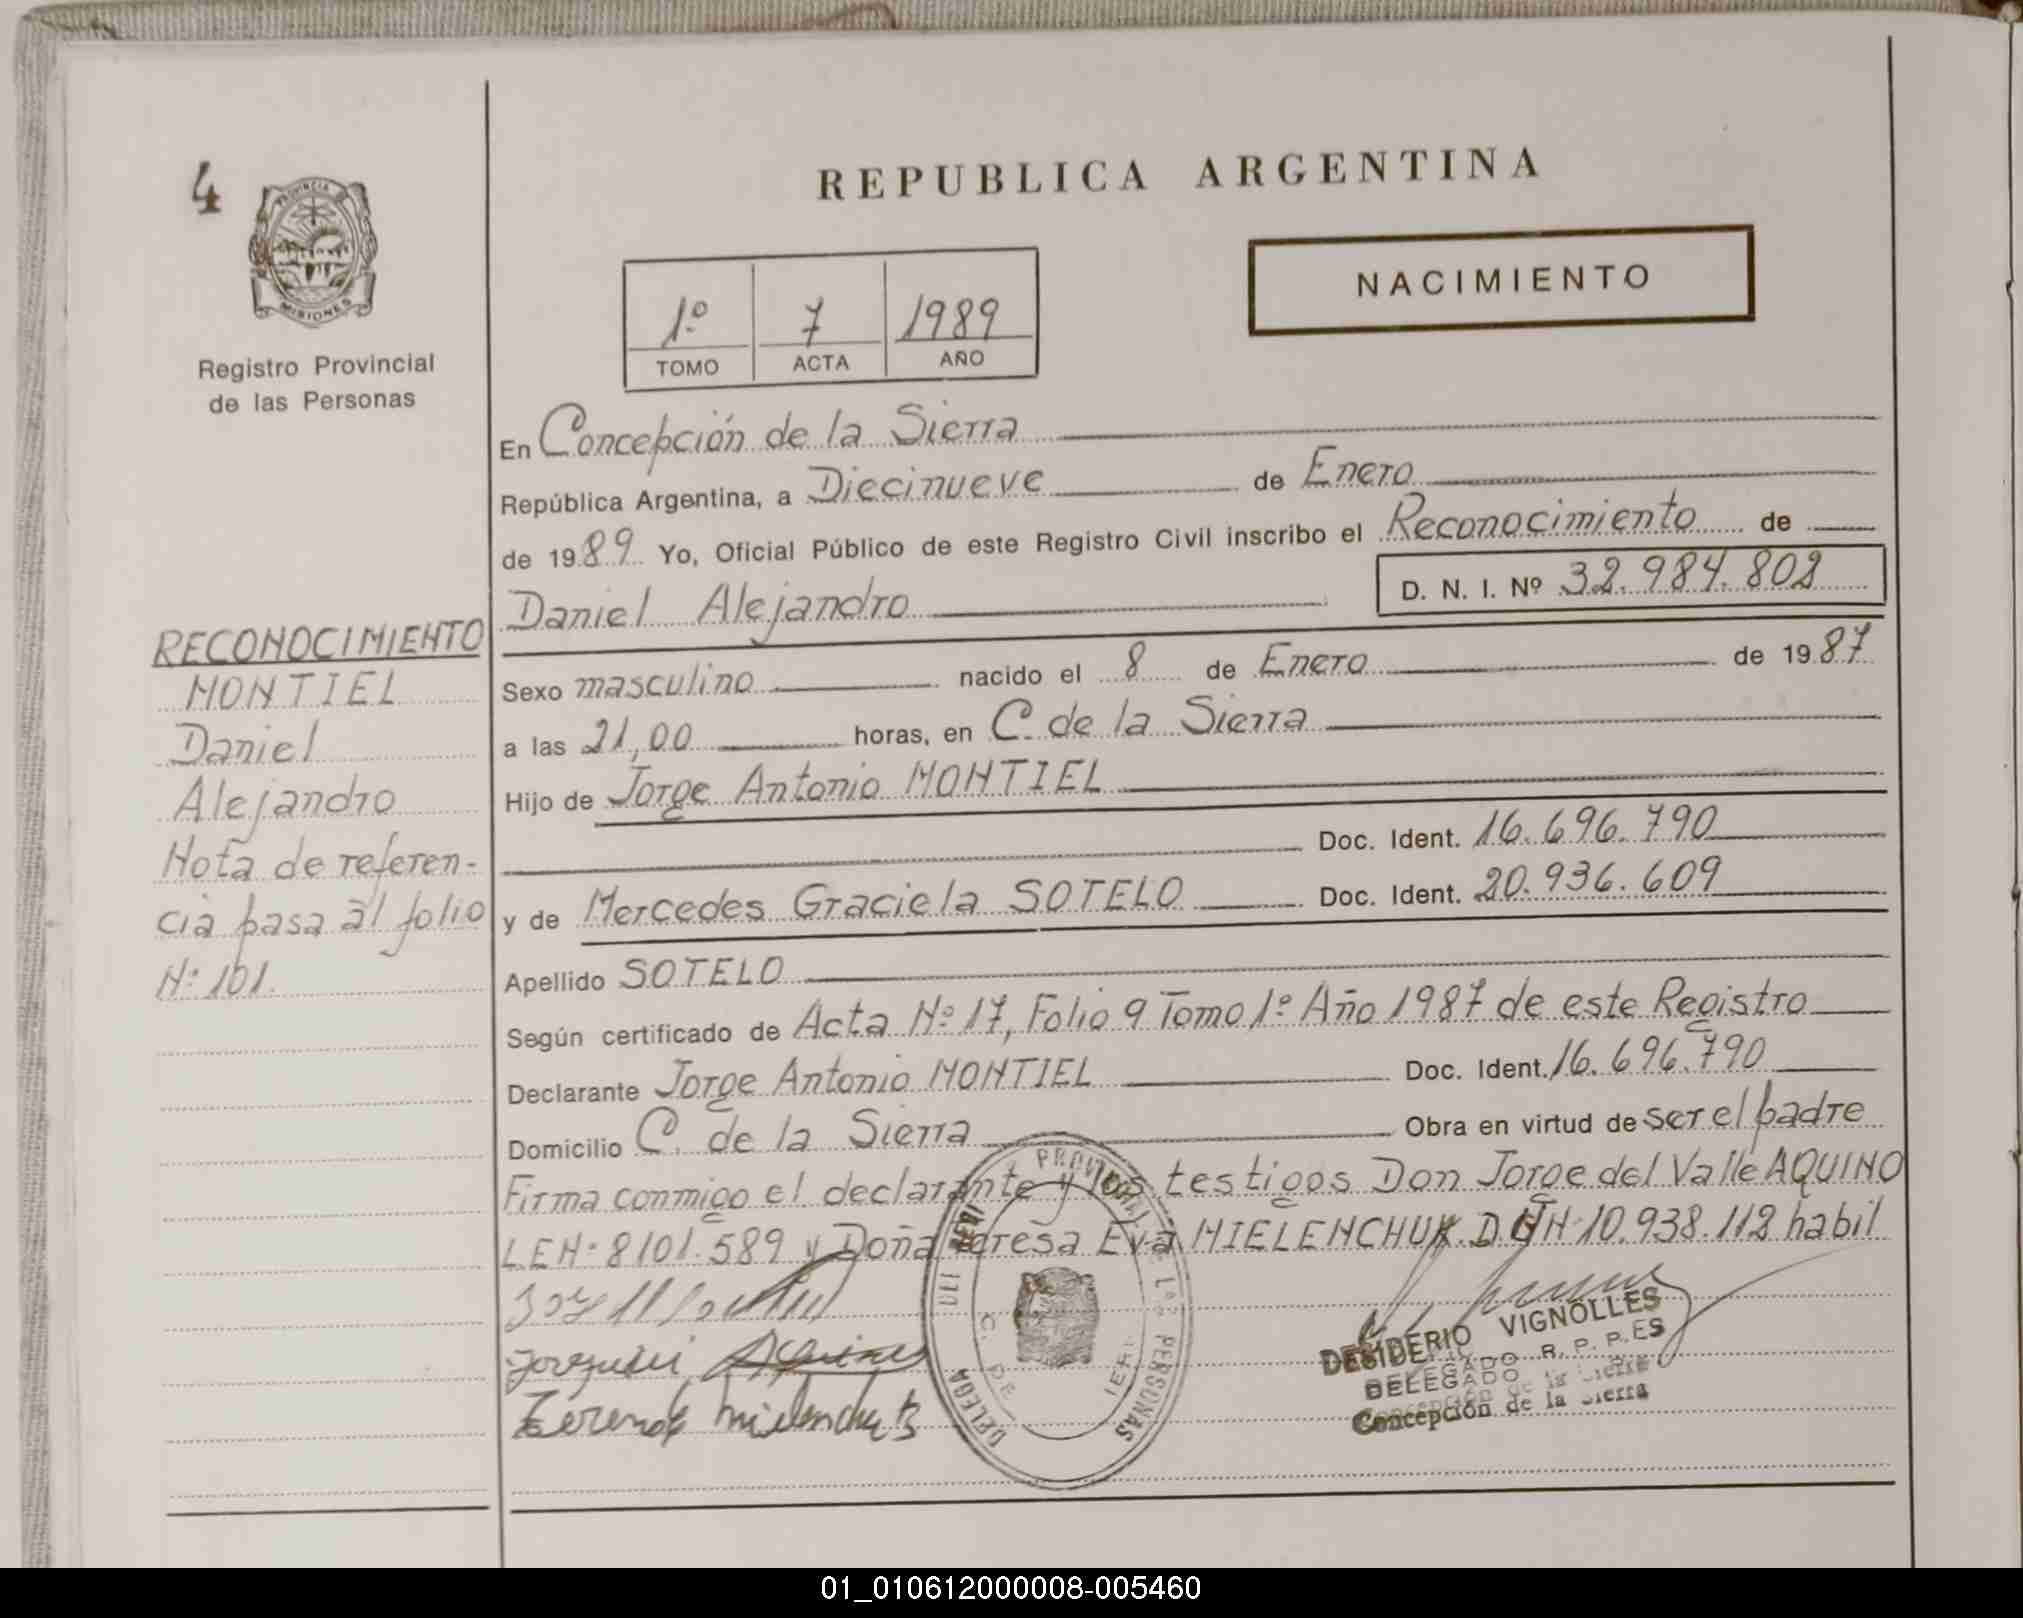 4
PROVINCIA DE
MISIONES
Registro Provincial
de las Personas
REPUBLICA ARGENTINA
NACIMIENTO
1º 7 1989
TOMO ACTA AÑO
En Concepción de la Sierra
República Argentina, a Diecinueve de Enero
de 1989 Yo, Oficial Público de este Registro Civil inscribo el Reconocimiento de
Daniel Alejandro D. N. I. Nº 32.984.802
Sexo masculino nacido el 8 de Enero de 1987
a las 21,00 horas, en C. de la Sierra
Hijo de Jorge Antonio MONTIEL
Doc. Ident. 16.696.790
y de Mercedes Graciela SOTELO Doc. Ident. 20.936.609
Apellido SOTELO
Según certificado de Acta Nº 17, Folio 9 Tomo 1º Año 1987 de este Registro
Declarante Jorge Antonio MONTIEL Doc. Ident. 16.696.790
Domicilio C. de la Sierra Obra en virtud de ser el padre
Firma conmigo el declarante y los testigos Don Jorge del Valle AQUINO
LEN: 8101.589 y Doña Teresa Eva MIELENCHUK D N 10.938.112 habil
RECONOCIMIENTO
MONTIEL
Daniel
Alejandro
Nota de referen-
cia pasa al folio
Nº 101.
DESIDERIO VIGNOLLES
DELEGADO R. P. P. ES
Concepción de la Sierra
PROVINCIAL
PERSONAS
C. DE
01_010612000008-005460